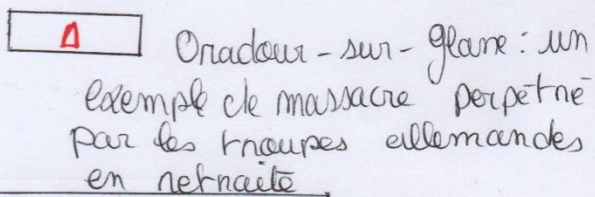 Oradour-sur-Glane : un
exemple de massacre perpétré
par les troupes allemandes
en retraite